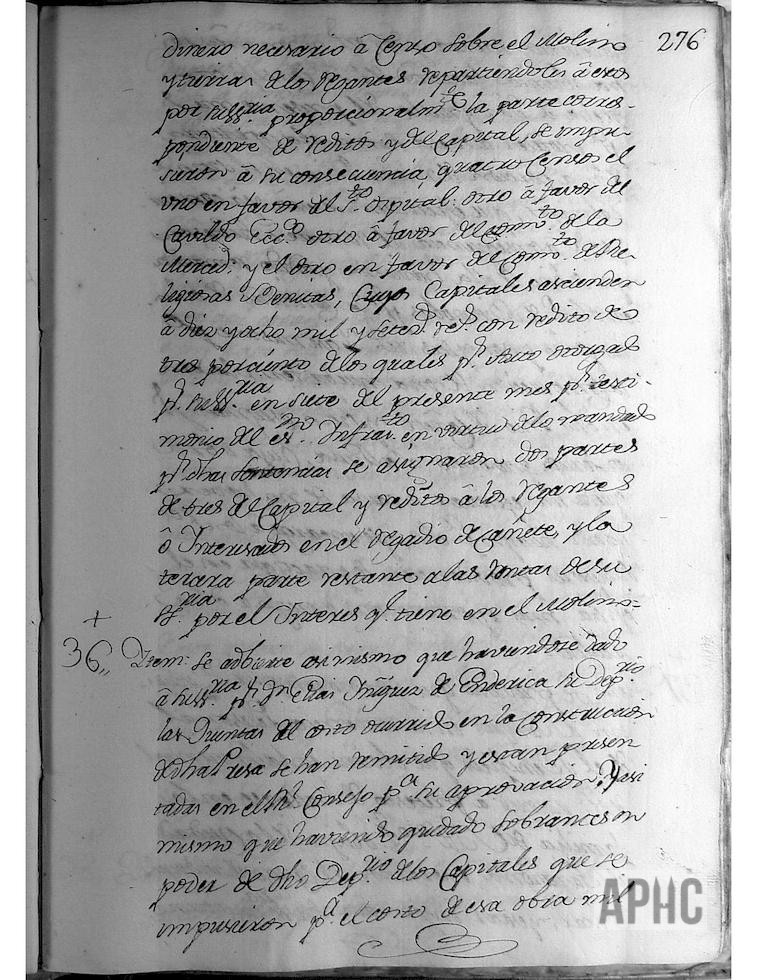 276
dinero necesario â Censo sobre el Molino
y tierras de los Regantes repartiendoles â esos
por su Ssria proporcionalmte la parte corres-
pondiente de reditos y del Capital, se impu-
sieron â su consecuencia quatro Censos el
uno en favor del Sto Ospital: otro â favor del
Cavildo Eccco otro â favor del Comto de la
Merced, y el otro en favor del Comto de Re-
ligiosas Benitas, Cuyos Capitales ascienden
â diez y ocho mil y seteds res con redito de
tres por ciento de los quales pr Auto otorgado
pr su Ssria en siete del presente mes pr testi-
monio del esno Infrasto en virtud de lo mandado
pr dhas sentencias se asignaron dos partes
de tres del Capital y reditos â los Regantes
ô Interesados en el regadio de Cañete, y la
tercera parte restante a las Rentas de su
Sria por el Interes qe tiene en el Molino=
+
36,, Item: se adbierte asi mismo que haviendose dado
â su Ssria pr Dn Elias Iñiguez de Enderica su Deprio
las Quentas del costo ocurrido en la Construccion
de dha Presa se han remitido y estan presen
tadas en el Rl Consejo pa su aprovacion: Y asi
mismo que haviendo quedado sobrantes en
poder de dho Deprio de los Capitales que se
impusieron pa el costo de esa obra mil
APHC